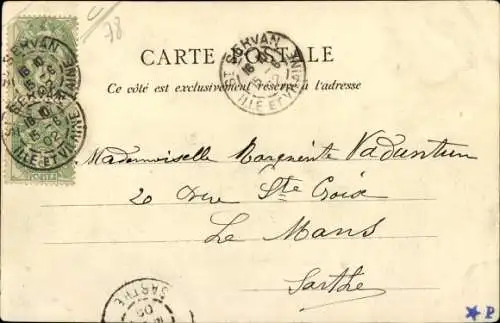 78
CARTE POSTALE
Ce côté est exclusivement réservé à l'adresse
ST SERVAN
ILLE-ET-VILAINE
ST SERVAN
16 10
15 -6
02
ILLE-ET-VILAINE
ST SERVAN
ILLE ET VILAINE
Mademoiselle Marguerite
20 rue Ste Croix
Le Mans
Sarthe
SARTHE
★ P